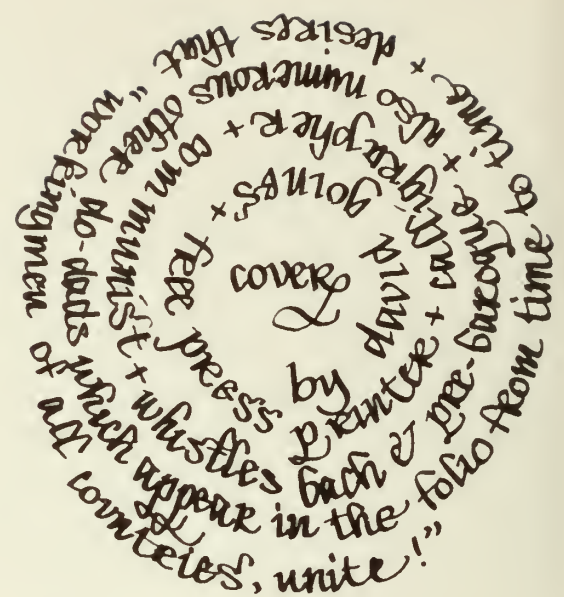 cover
by david goines + free press
printer + calligrapher + communist + whistles
bach & pre-baroque + also numerous other do-dads which appear
in the folio from time to time + desires that "workingmen of all countries, unite!"